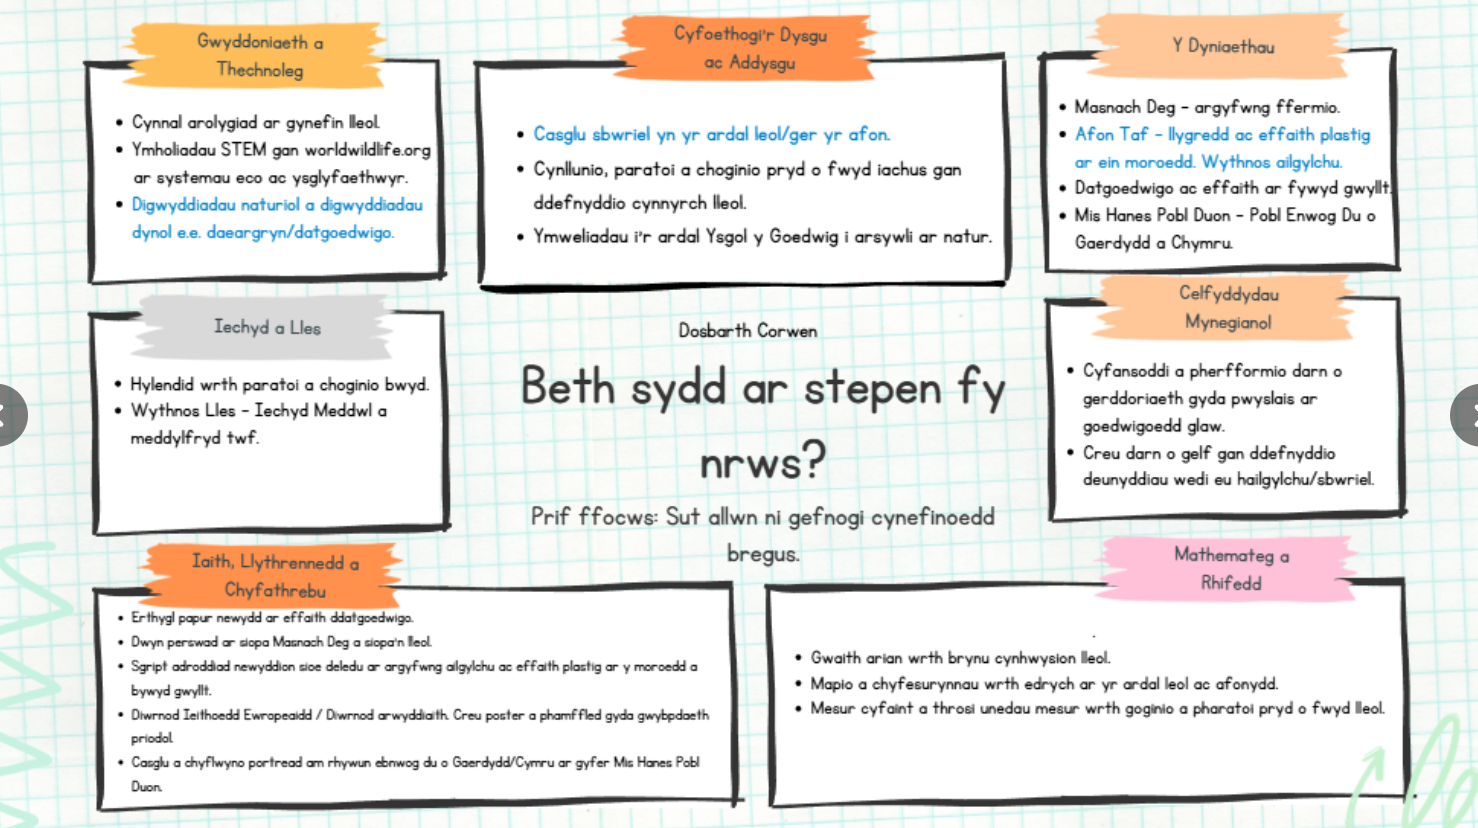 Gwyddoniaeth a
Thechnoleg
• Cynnal arolygiad ar gynefin lleol.
• Ymholiadau STEM gan worldwildlife.org
ar systemau eco ac ysglyfaethwyr.
• Digwyddiadau naturiol a digwyddiadau
dynol e.e. daeargryn/datgoedwigo.
Cyfoethogi'r Dysgu
ac Addysgu
• Casglu sbwriel yn yr ardal leol/ger yr afon.
• Cynllunio, paratoi a choginio pryd o fwyd iachus gan
ddefnyddio cynnyrch lleol.
• Ymweliadau i'r ardal Ysgol y Goedwig i arsywli ar natur.
Y Dyniaethau
• Masnach Deg - argyfwng ffermio.
• Afon Taf - llygredd ac effaith plastig
ar ein moroedd. Wythnos ailgylchu.
• Datgoedwigo ac effaith ar fywyd gwyllt.
• Mis Hanes Pobl Duon - Pobl Enwog Du o
Gaerdydd a Chymru.
Iechyd a Lles
• Hylendid wrth paratoi a choginio bwyd.
• Wythnos Lles - Iechyd Meddwl a
meddylfryd twf.
Dosbarth Corwen
Beth sydd ar stepen fy
nrws?
Prif ffocws: Sut allwn ni gefnogi cynefinoedd
bregus.
Celfyddydau
Mynegianol
• Cyfansoddi a pherfformio darn o
gerddoriaeth gyda pwyslais ar
goedwigoedd glaw.
• Creu darn o gelf gan ddefnyddio
deunyddiau wedi eu hailgylchu/sbwriel.
Iaith, Llythrennedd a
Chyfathrebu
• Erthygl papur newydd ar effaith ddatgoedwigo.
• Dwyn perswad ar siopa Masnach Deg a siopa'n lleol.
• Sgript adroddiad newyddion sioe deledu ar argyfwng ailgylchu ac effaith plastig ar y moroedd a
bywyd gwyllt.
• Diwrnod Ieithoedd Ewropeaidd / Diwrnod arwyddiaith. Creu poster a phamffled gyda gwybpdaeth
priodol.
• Casglu a chyflwyno portread am rhywun ebnwog du o Gaerdydd/Cymru ar gyfer Mis Hanes Pobl
Duon.
Mathemateg a
Rhifedd
.
• Gwaith arian wrth brynu cynhwysion lleol.
• Mapio a chyfesurynnau wrth edrych ar yr ardal leol ac afonydd.
• Mesur cyfaint a throsi unedau mesur wrth goginio a pharatoi pryd o fwyd lleol.